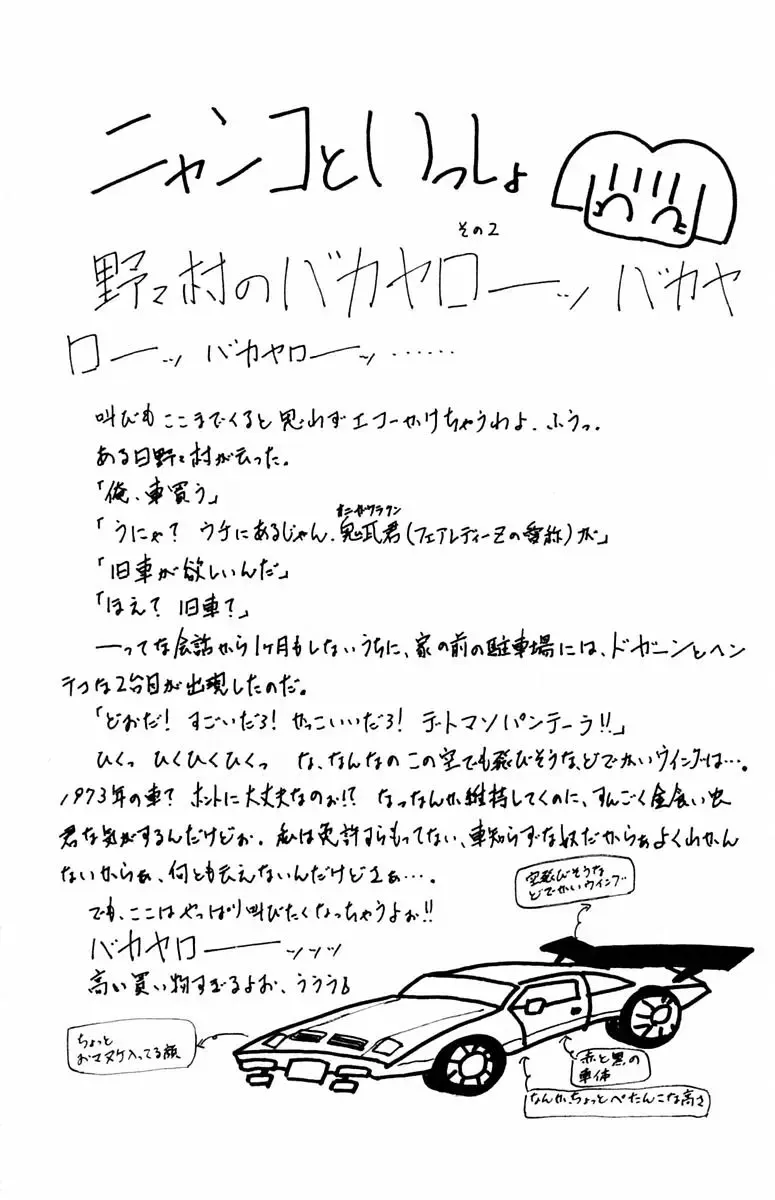 ニャンコといっしょ
その2
野々村のバカヤローーッ バカヤ
ローーッ バカヤローーッ……
叫びもここまでくると思わずエコーかけちゃうわよ.ふうっ.
ある日野々村が云った。
「俺、車買う」
「うにゃ? ウチにあるじゃん.鬼瓦君(フェアレディーZの愛称)が」
「旧車が欲しいんだ」
「ほえ? 旧車?」
──ってな会話から1ヶ月もしないうちに、家の前の駐車場には、ドガーンとヘン
テコな2台目が出現したのだ。
「どおだ! すごいだろ! かっこいいだろ! デ・トマソパンテーラ!!」
ひくっ ひくひくひくっ な、なんなのこの空でも飛びそうな、どでかいウイングは…。
1973年の車? ホントに大丈夫なのぉ!? なっなんか維持してくのに、すんごく金食い虫
君な気がするんだけどぉ. 私は免許すらもってない、車知らずな奴だからぁよくわかん
ないからぁ、何とも云えないんだけどさぁ….
でも、ここはやっぱり叫びたくなっちゃうよぉ!!
バカヤローーーッッッ
高い買い物すぎるよお、ううう
空飛びそうな
どでかいウイング
ちょっと
おマヌケ入ってる顔
赤と黒の
車体
なんか、ちょっとぺたんこな高さ